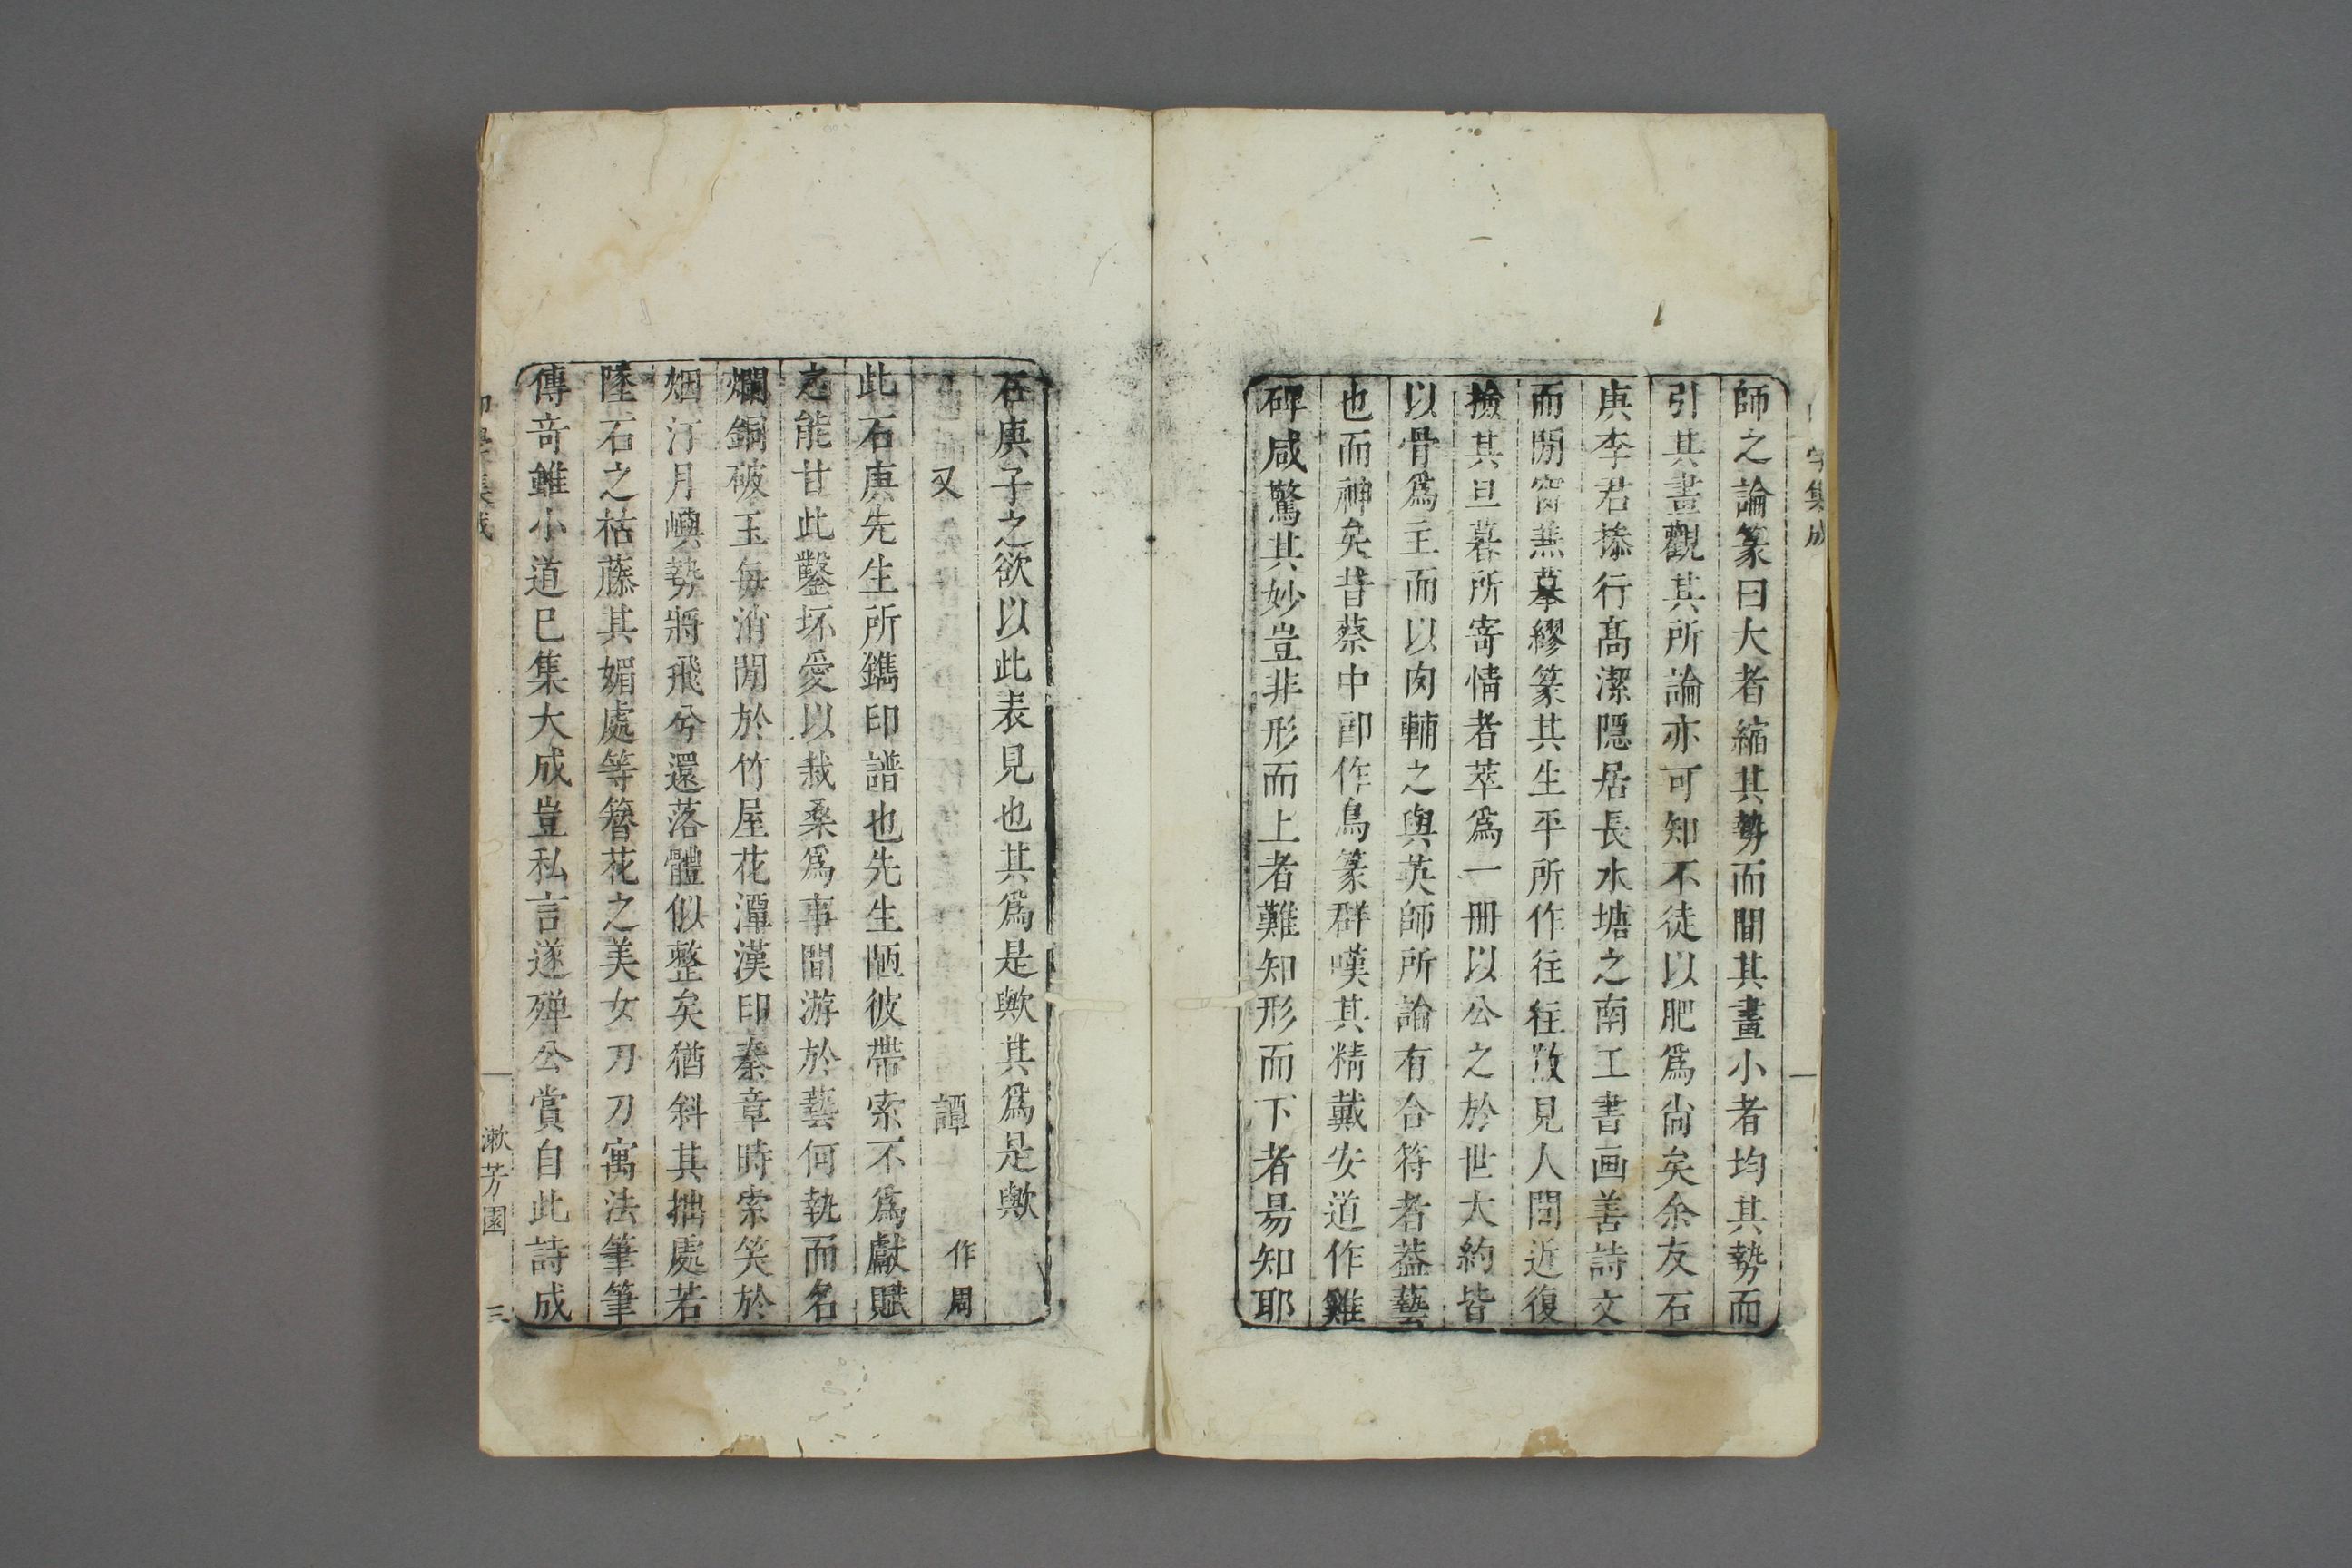 師之論篆曰大者縮其勢而間其畫小者均其勢而
引其畫觀其所論亦可知不徒以肥爲尚矣余友石
庚李君操行髙潔隱居長水塘之南工書画善詩文
而閒窗燕摹繆篆其生平所作往往散見人間近復
撿其旦暮所寄情者萃爲一冊以公之於世大約皆
以骨爲主而以肉輔之與英師所論有合符者葢藝
也而神矣昔蔡中郎作鳥篆群嘆其精戴安道作雞
碑咸驚其妙豈非形而上者難知形而下者易知耶
石庚子之欲以此表見也其爲是歟其爲是歟
又 譚 作周
此石庚先生所鐫印譜也先生陋彼帶索不爲獻賦
之能甘此鑿坏愛以栽桑爲事間游於藝何執而名
爛銅破玉每消閒於竹屋花潭漢印秦章時索笑於
烟汀月嶼勢將飛兮還落體似整矣猶斜其拙處若
墜石之枯藤其媚處等簪花之美女刀刀寓法筆筆
傳竒雖小道已集大成豈私言遂殫公賞自此詩成
集成
漱芳園
三